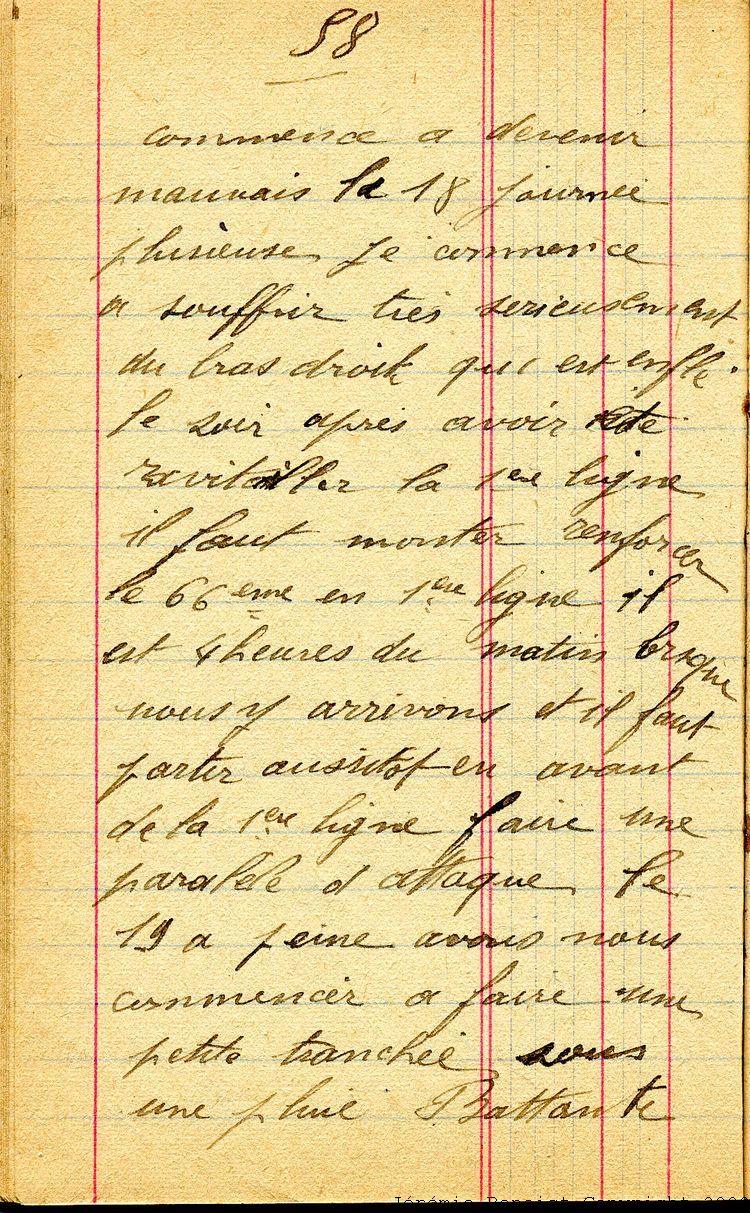 58
commence a devenir
mauvais le 18 journee
plusieuse Je commence
a souffrir tres serieusement
du bras droit qui est enflé.
le soir apres avoir été
ravitailler la 1ere ligne
il faut monter renforcer
le 66eme en 1ere ligne il
est 4 heures du matin lorsque
nous y arrivons et il faut
partir aussitot en avant
de la 1ere ligne faire une
paralele d attaque le
19 a peine avons nous
commencer a faire une
petite tranchée sous
une pluie Battante